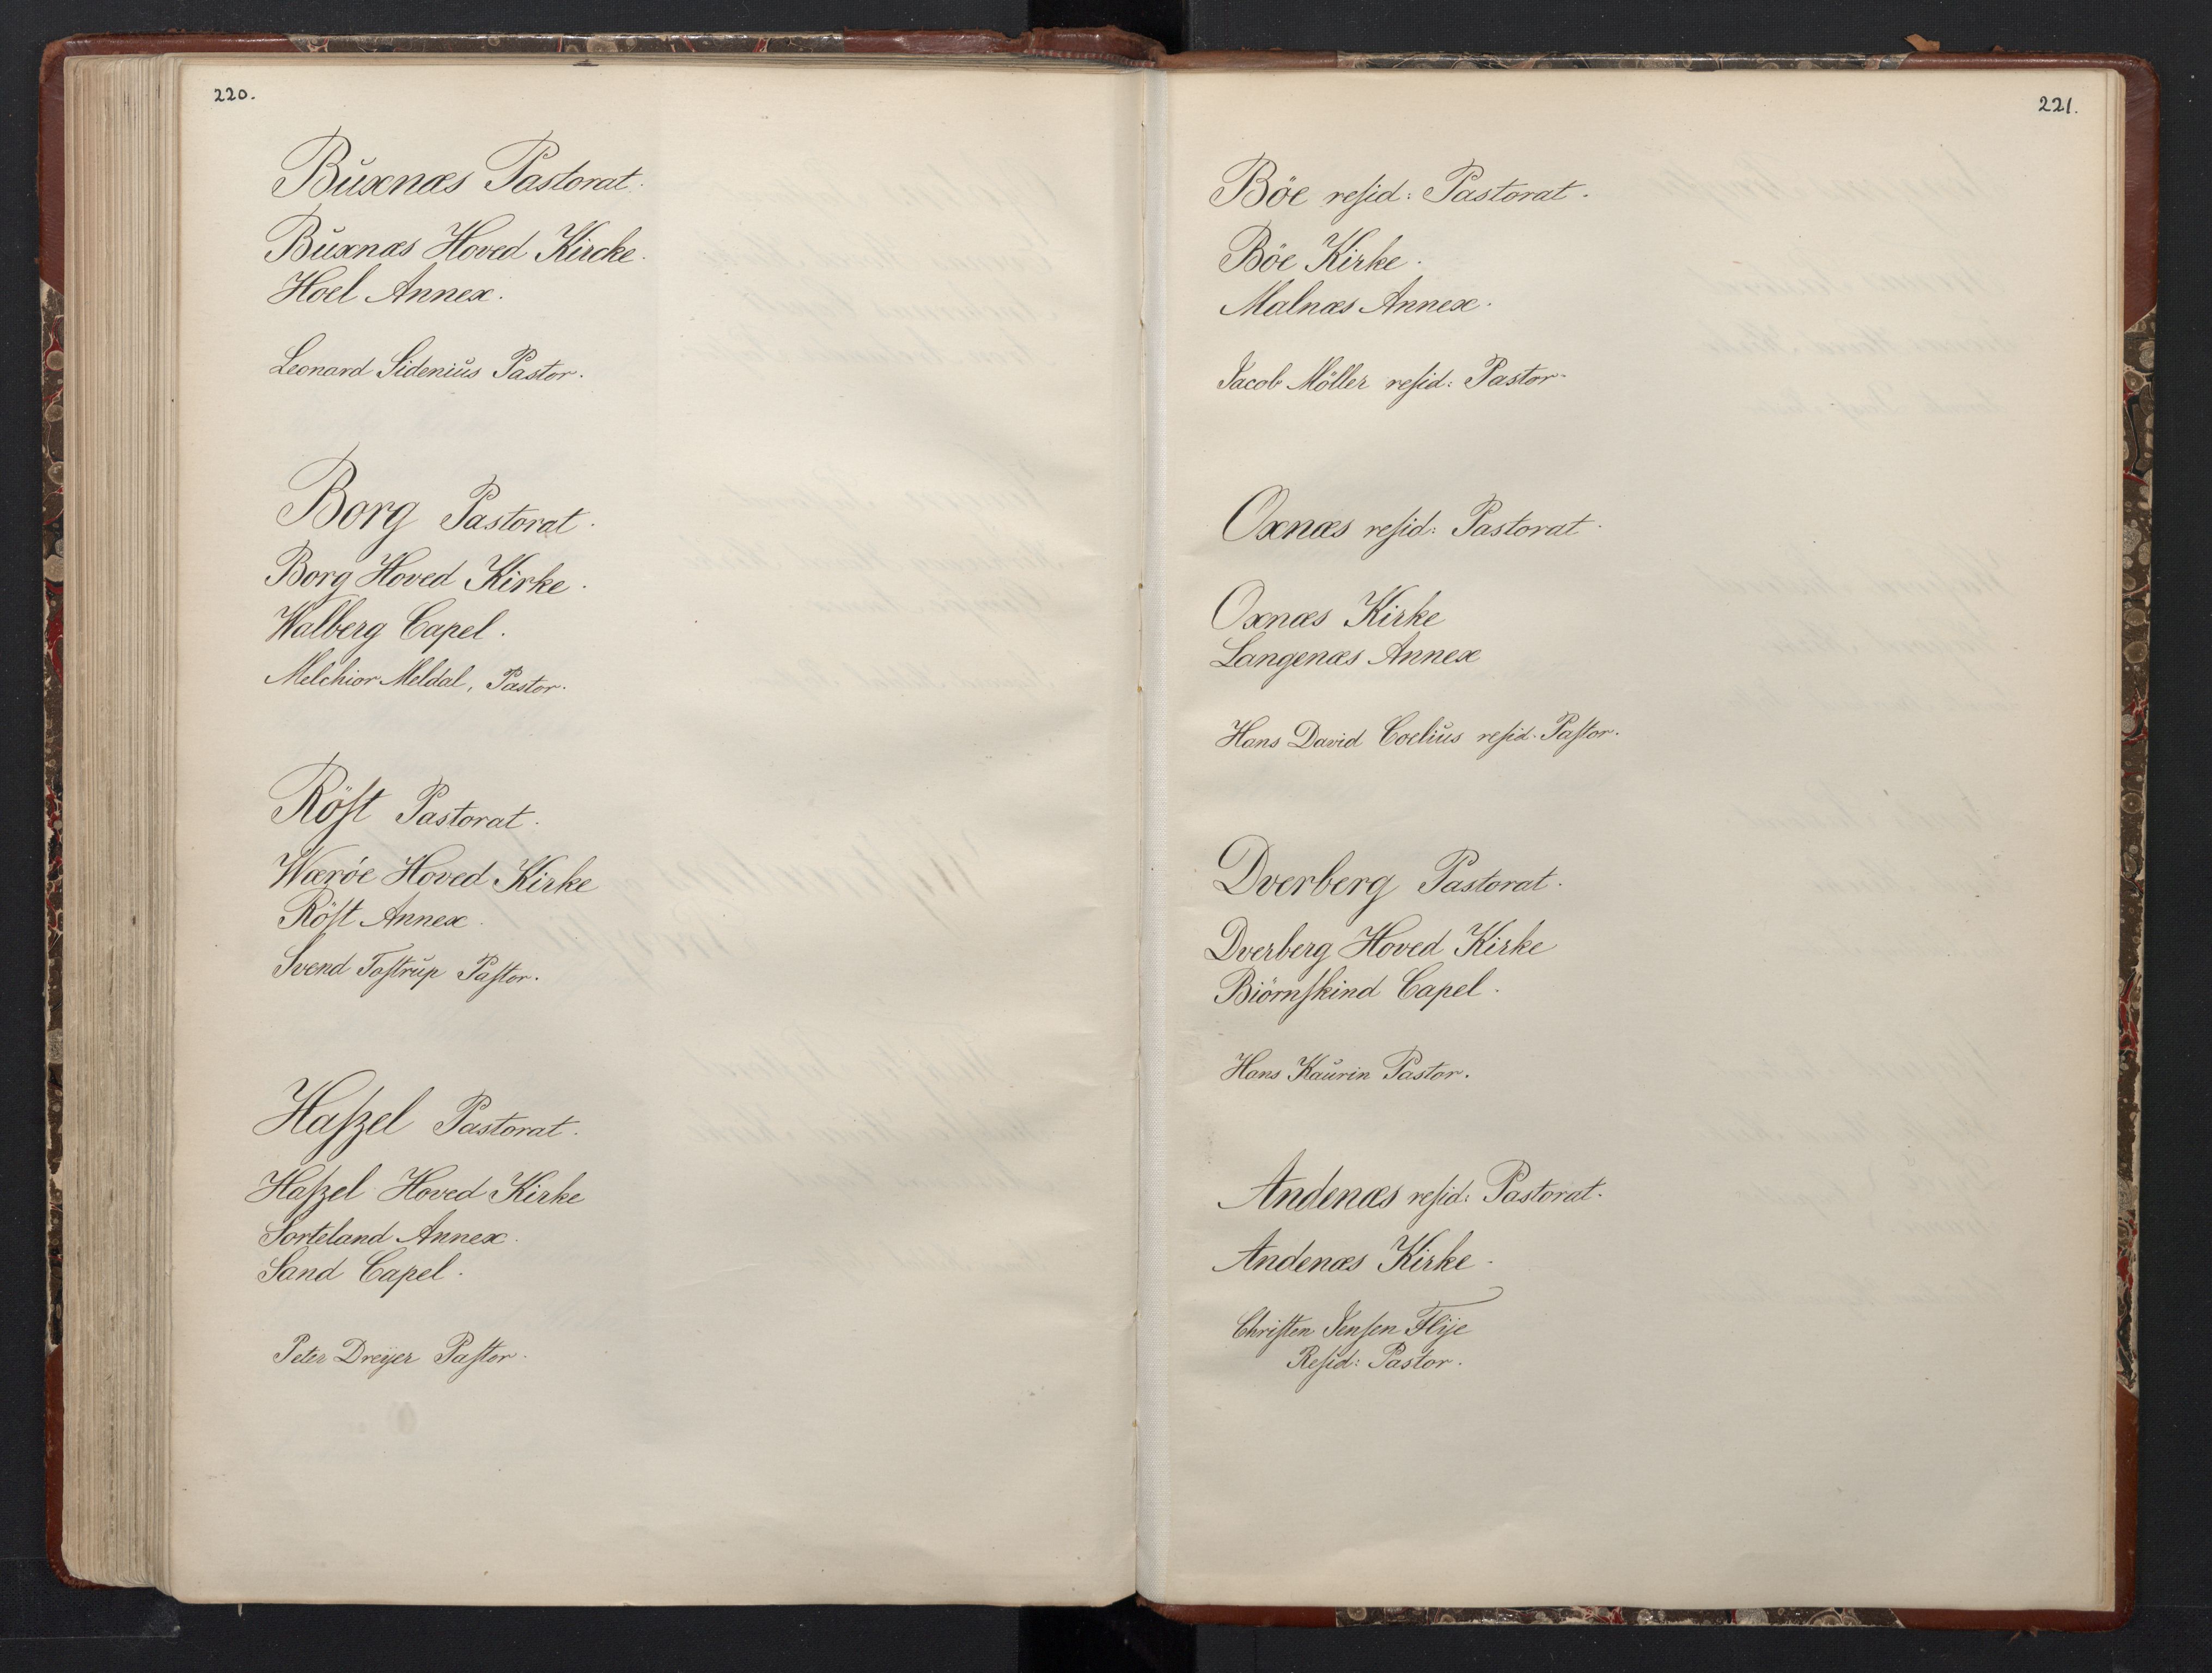 220.
Buxnæs Pastorat.
Buxnæs Hoved Kircke.
Hoel Annex.
Leonard Sidenius Pastor.
Borg Pastorat.
Borg Hoved Kirke.
Walberg Capel.
Melchior Meldal, Pastor.
Röst Pastorat.
Wæröe Hoved Kirke
Röst Annex.
Svend Tostrup Pastor.
Haszel Pastorat.
Haszel Hoved Kirke
Sorteland Annex.
Sand Capel.
Peter Dreÿer Pastor.
221.
Böe resid: Pastorat.
Böe Kirke.
Malnæs Annex.
Jacob Möller resid: Pastor.
Oxnæs resid: Pastorat.
Oxnæs Kirke
Langenæs Annex
Hans David Coelius resid. Pastor.
Dverberg Pastorat.
Dverberg Hoved Kirke
Biörnskind Capel.
Hans Kaurin Pastor.
Andenæs resid: Pastorat.
Andenæs Kirke.
Christen Jensen Flÿe
Resid: Pastor.